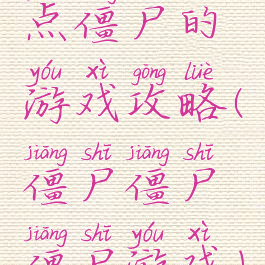 点僵尸的
yóu xì gōng lüè
游戏攻略(
jiāng shī jiāng shī
僵尸僵尸
jiāng shī yóu xì
僵尸游戏)